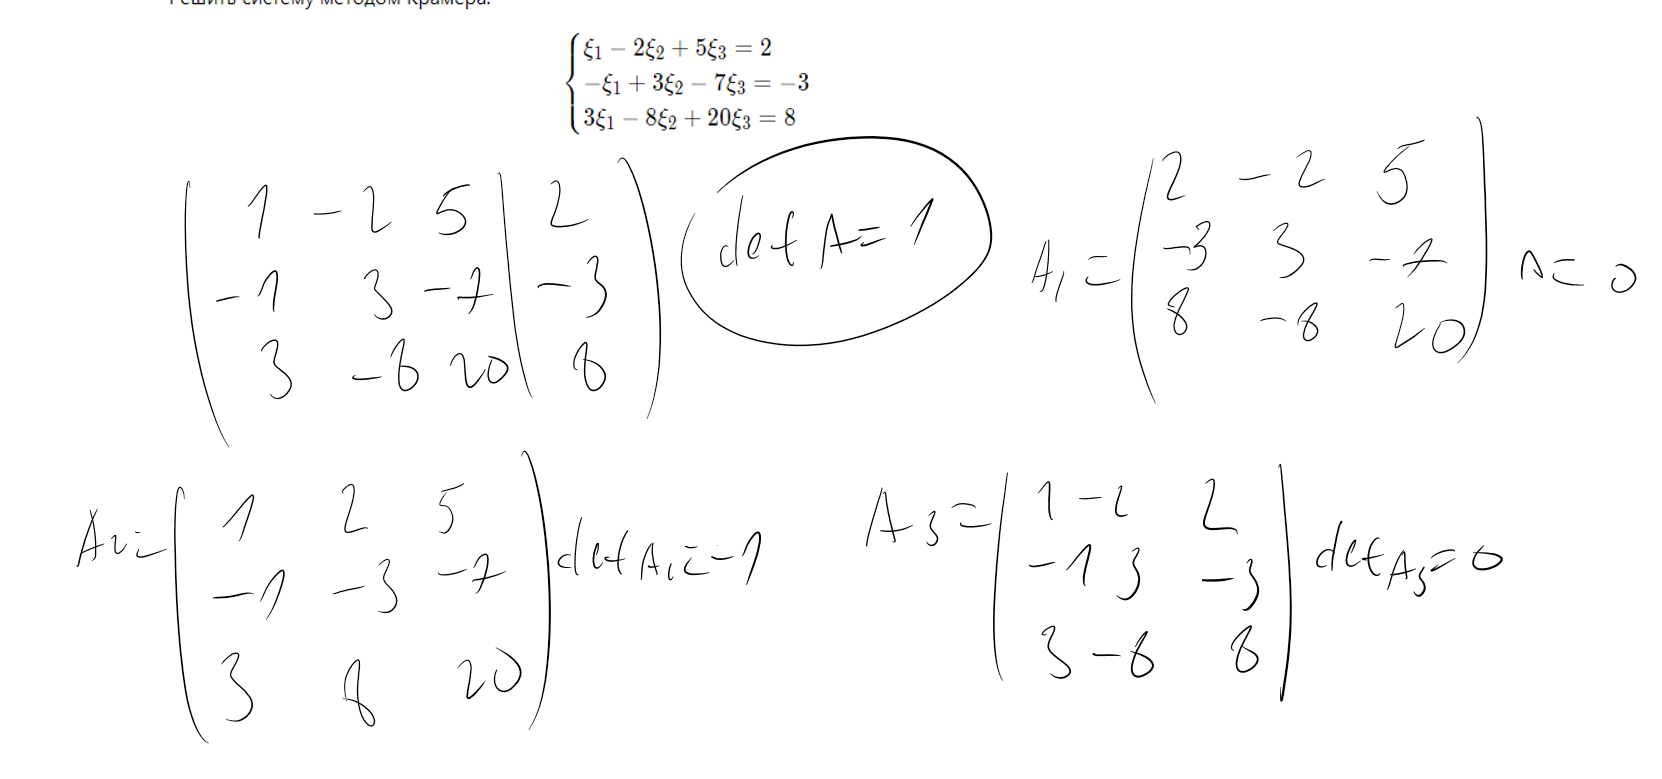 Решить систему методом Крамера.
ξ₁ − 2ξ₂ + 5ξ₃ = 2
−ξ₁ + 3ξ₂ − 7ξ₃ = −3
3ξ₁ − 8ξ₂ + 20ξ₃ = 8
1 −2 5 | 2
−1 3 −7 | −3
3 −8 20 | 8
det A = 1
A₁ =
2 −2 5
−3 3 −7
8 −8 20
Δ = 0
A₂ =
1 2 5
−1 −3 −7
3 8 20
det A₂ = −1
A₃ =
1 −2 2
−1 3 −3
3 −8 8
det A₃ = 0